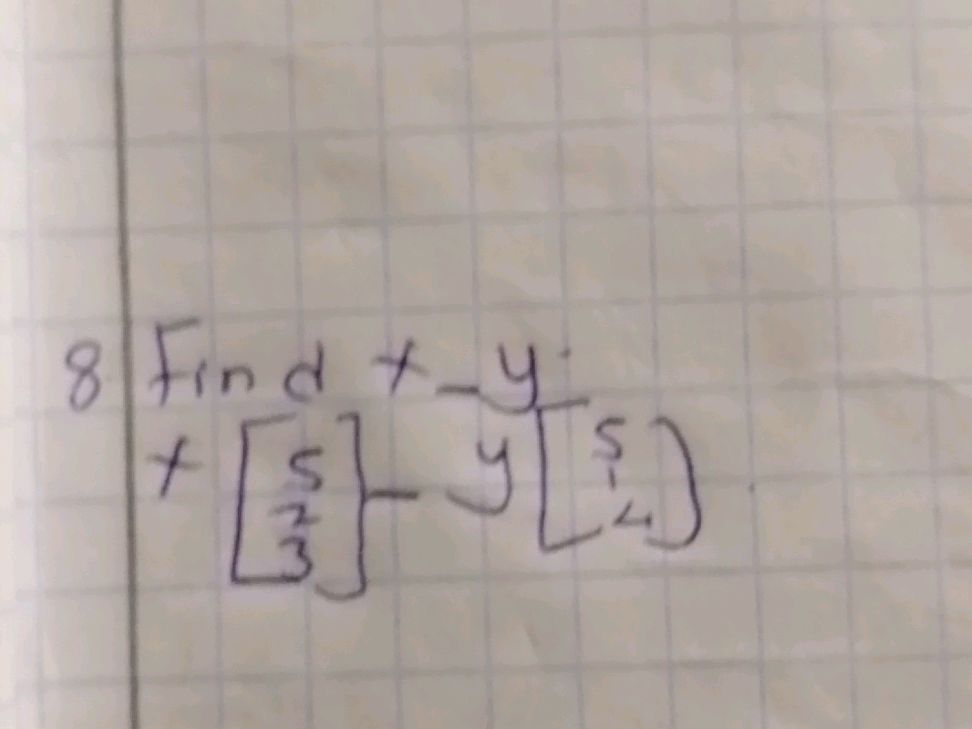 8 Find x - y
x [5 2 3] - y [5 1 4]